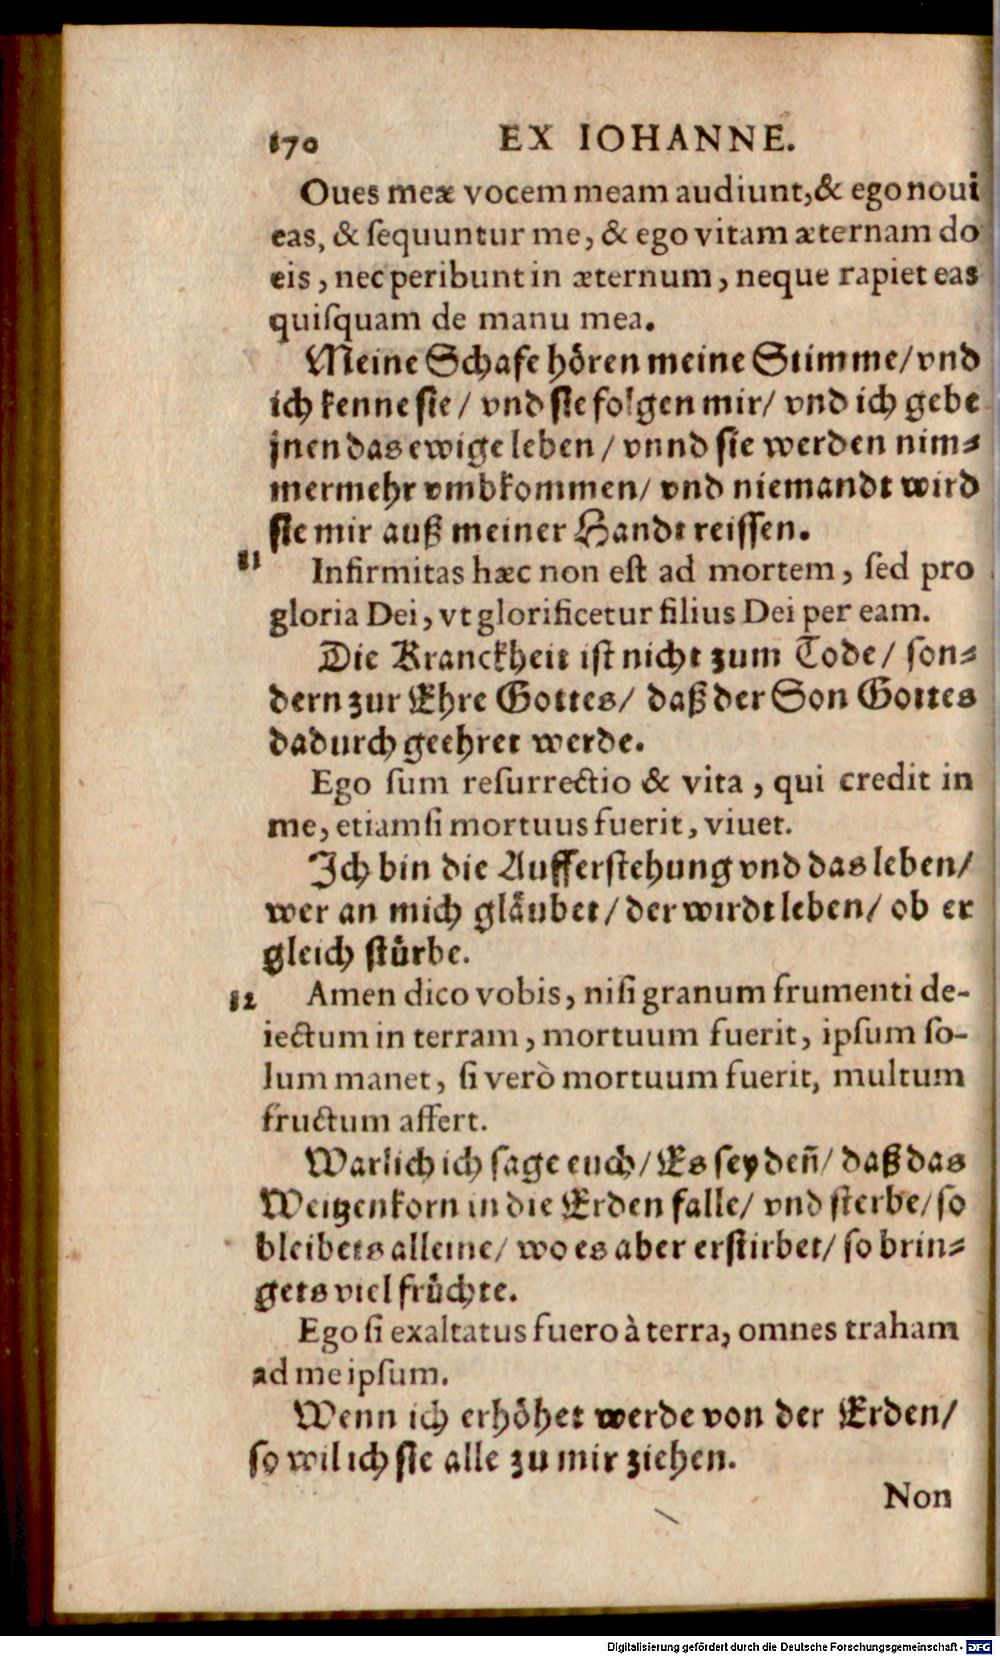 170 EX IOHANNE.
Oues meæ vocem meam audiunt, & ego noui
eas, & ſequuntur me, & ego vitam æternam do
eis, nec peribunt in æternum, neque rapiet eas
quiſquam de manu mea.
Meine Schafe hoͤren meine Stimme/ vnd
ich kenne ſie/ vnd ſie folgen mir/ vnd ich gebe
jnen das ewige leben/ vnnd ſie werden nim⸗
mermehr vmbkommen/ vnd niemandt wird
ſie mir auß meiner Handt reiſſen.
11 Infirmitas hæc non eſt ad mortem, ſed pro
gloria Dei, vt glorificetur filius Dei per eam.
Die Kranckheit iſt nicht zum Tode/ ſon⸗
dern zur Ehre Gottes/ daß der Son Gottes
dadurch geehret werde.
Ego ſum reſurrectio & vita, qui credit in
me, etiamſi mortuus fuerit, viuet.
Ich bin die Aufferſtehung vnd das leben/
wer an mich glaͤubet/ der wirdt leben/ ob er
gleich ſtuͤrbe.
12 Amen dico vobis, niſi granum frumenti de-
iectum in terram, mortuum fuerit, ipſum ſo-
lum manet, ſi verò mortuum fuerit, multum
fructum affert.
Warlich ich ſage euch/ Es ſey den̄/ daß das
Weitzenkorn in die Erden falle/ vnd ſterbe/ ſo
bleibets alleine/ wo es aber erſtirbet/ ſo brin⸗
gets viel fruͤchte.
Ego ſi exaltatus fuero à terra, omnes traham
ad me ipſum.
Wenn ich erhoͤhet werde von der Erden/
ſo wil ich ſie alle zu mir ziehen.
Non
Digitalisierung gefördert durch die Deutsche Forschungsgemeinschaft - DFG